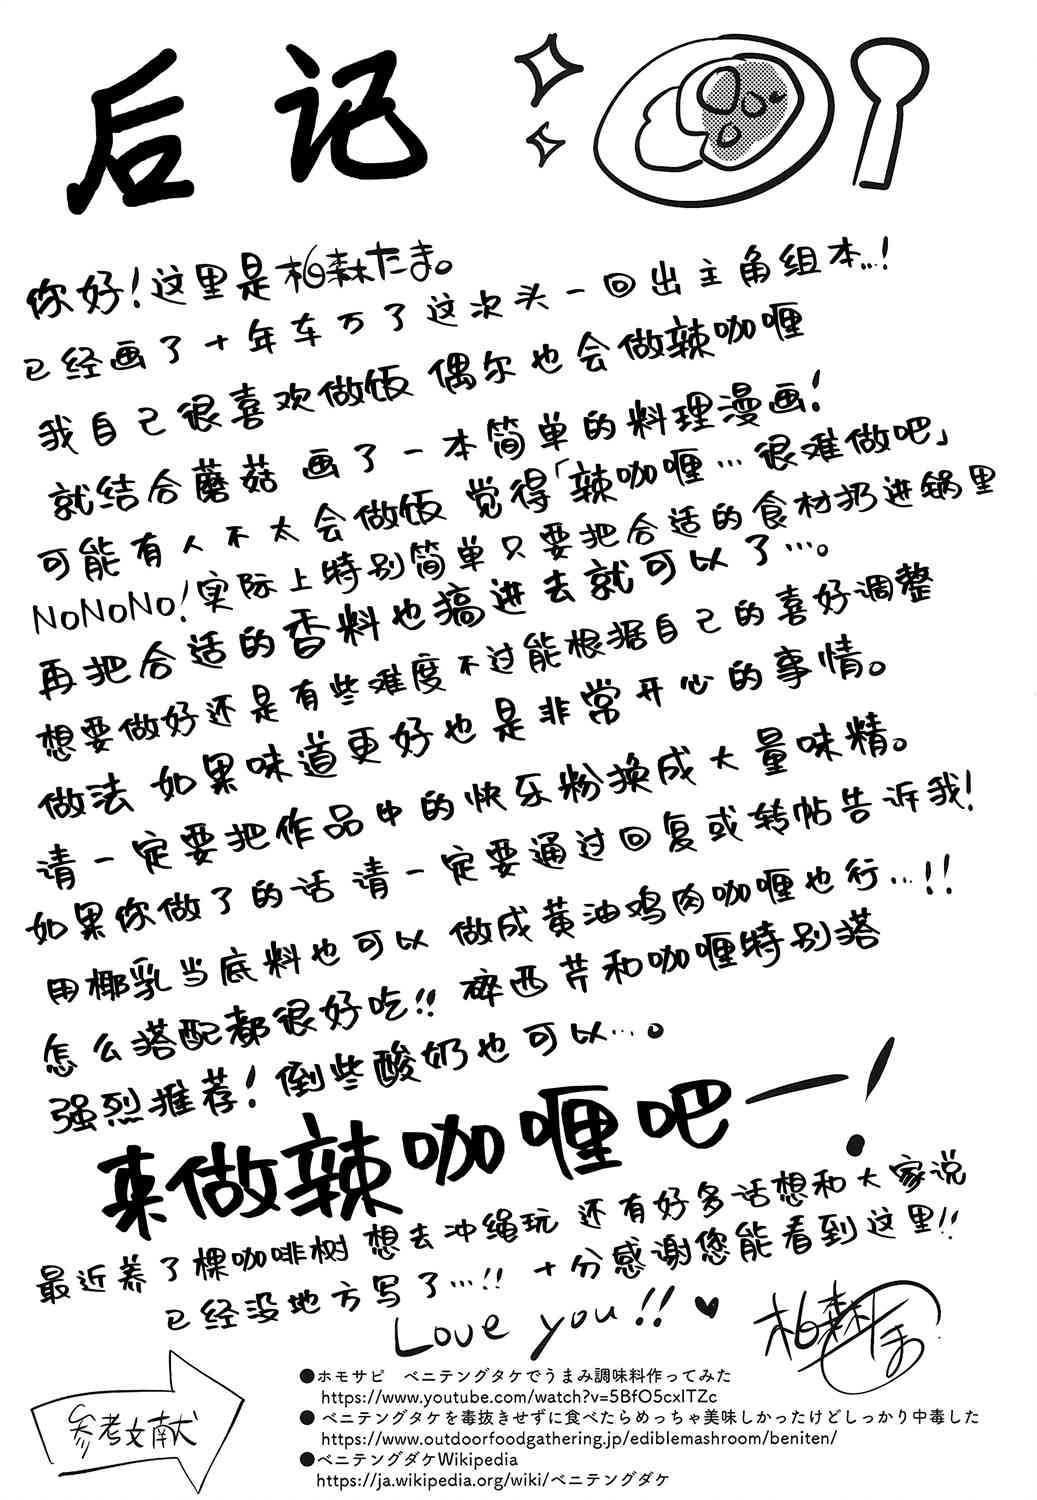 后记
你好!这里是柏森たま。
已经画了十年车万了这次头一回出主角组本…!
我自己很喜欢做饭 偶尔也会做辣咖喱
就结合蘑菇 画了一本简单的料理漫画!
可能有人不太会做饭 觉得「辣咖喱…很难做吧」
NoNoNo!实际上特别简单只要把合适的食材扔进锅里
再把合适的香料也搞进去就可以了…。
想要做好还是有些难度不过能根据自己的喜好调整
做法 如果味道更好也是非常开心的事情。
请一定要把作品中的快乐粉换成大量味精。
如果你做了的话 请一定要通过回复或转帖告诉我!
用椰乳当底料也可以 做成黄油鸡肉咖喱也行…!!
怎么搭配都很好吃!! 碎西芹和咖喱特别搭
强烈推荐!倒些酸奶也可以…。
来做辣咖喱吧ー!
最近养了棵咖啡树 想去冲绳玩 还有好多话想和大家说
已经没地方写了…!! 十分感谢您能看到这里!!
Love you!! ♥
柏森たま
参考文献
●ホモサピ　ベニテングタケでうまみ調味料作ってみた
https://www.youtube.com/watch?v=5BfO5cxlTZc
●ベニテングタケを毒抜きせずに食べたらめっちゃ美味しかったけどしっかり中毒した
https://www.outdoorfoodgathering.jp/ediblemashroom/beniten/
●ベニテングダケWikipedia
https://ja.wikipedia.org/wiki/ベニテングダケ